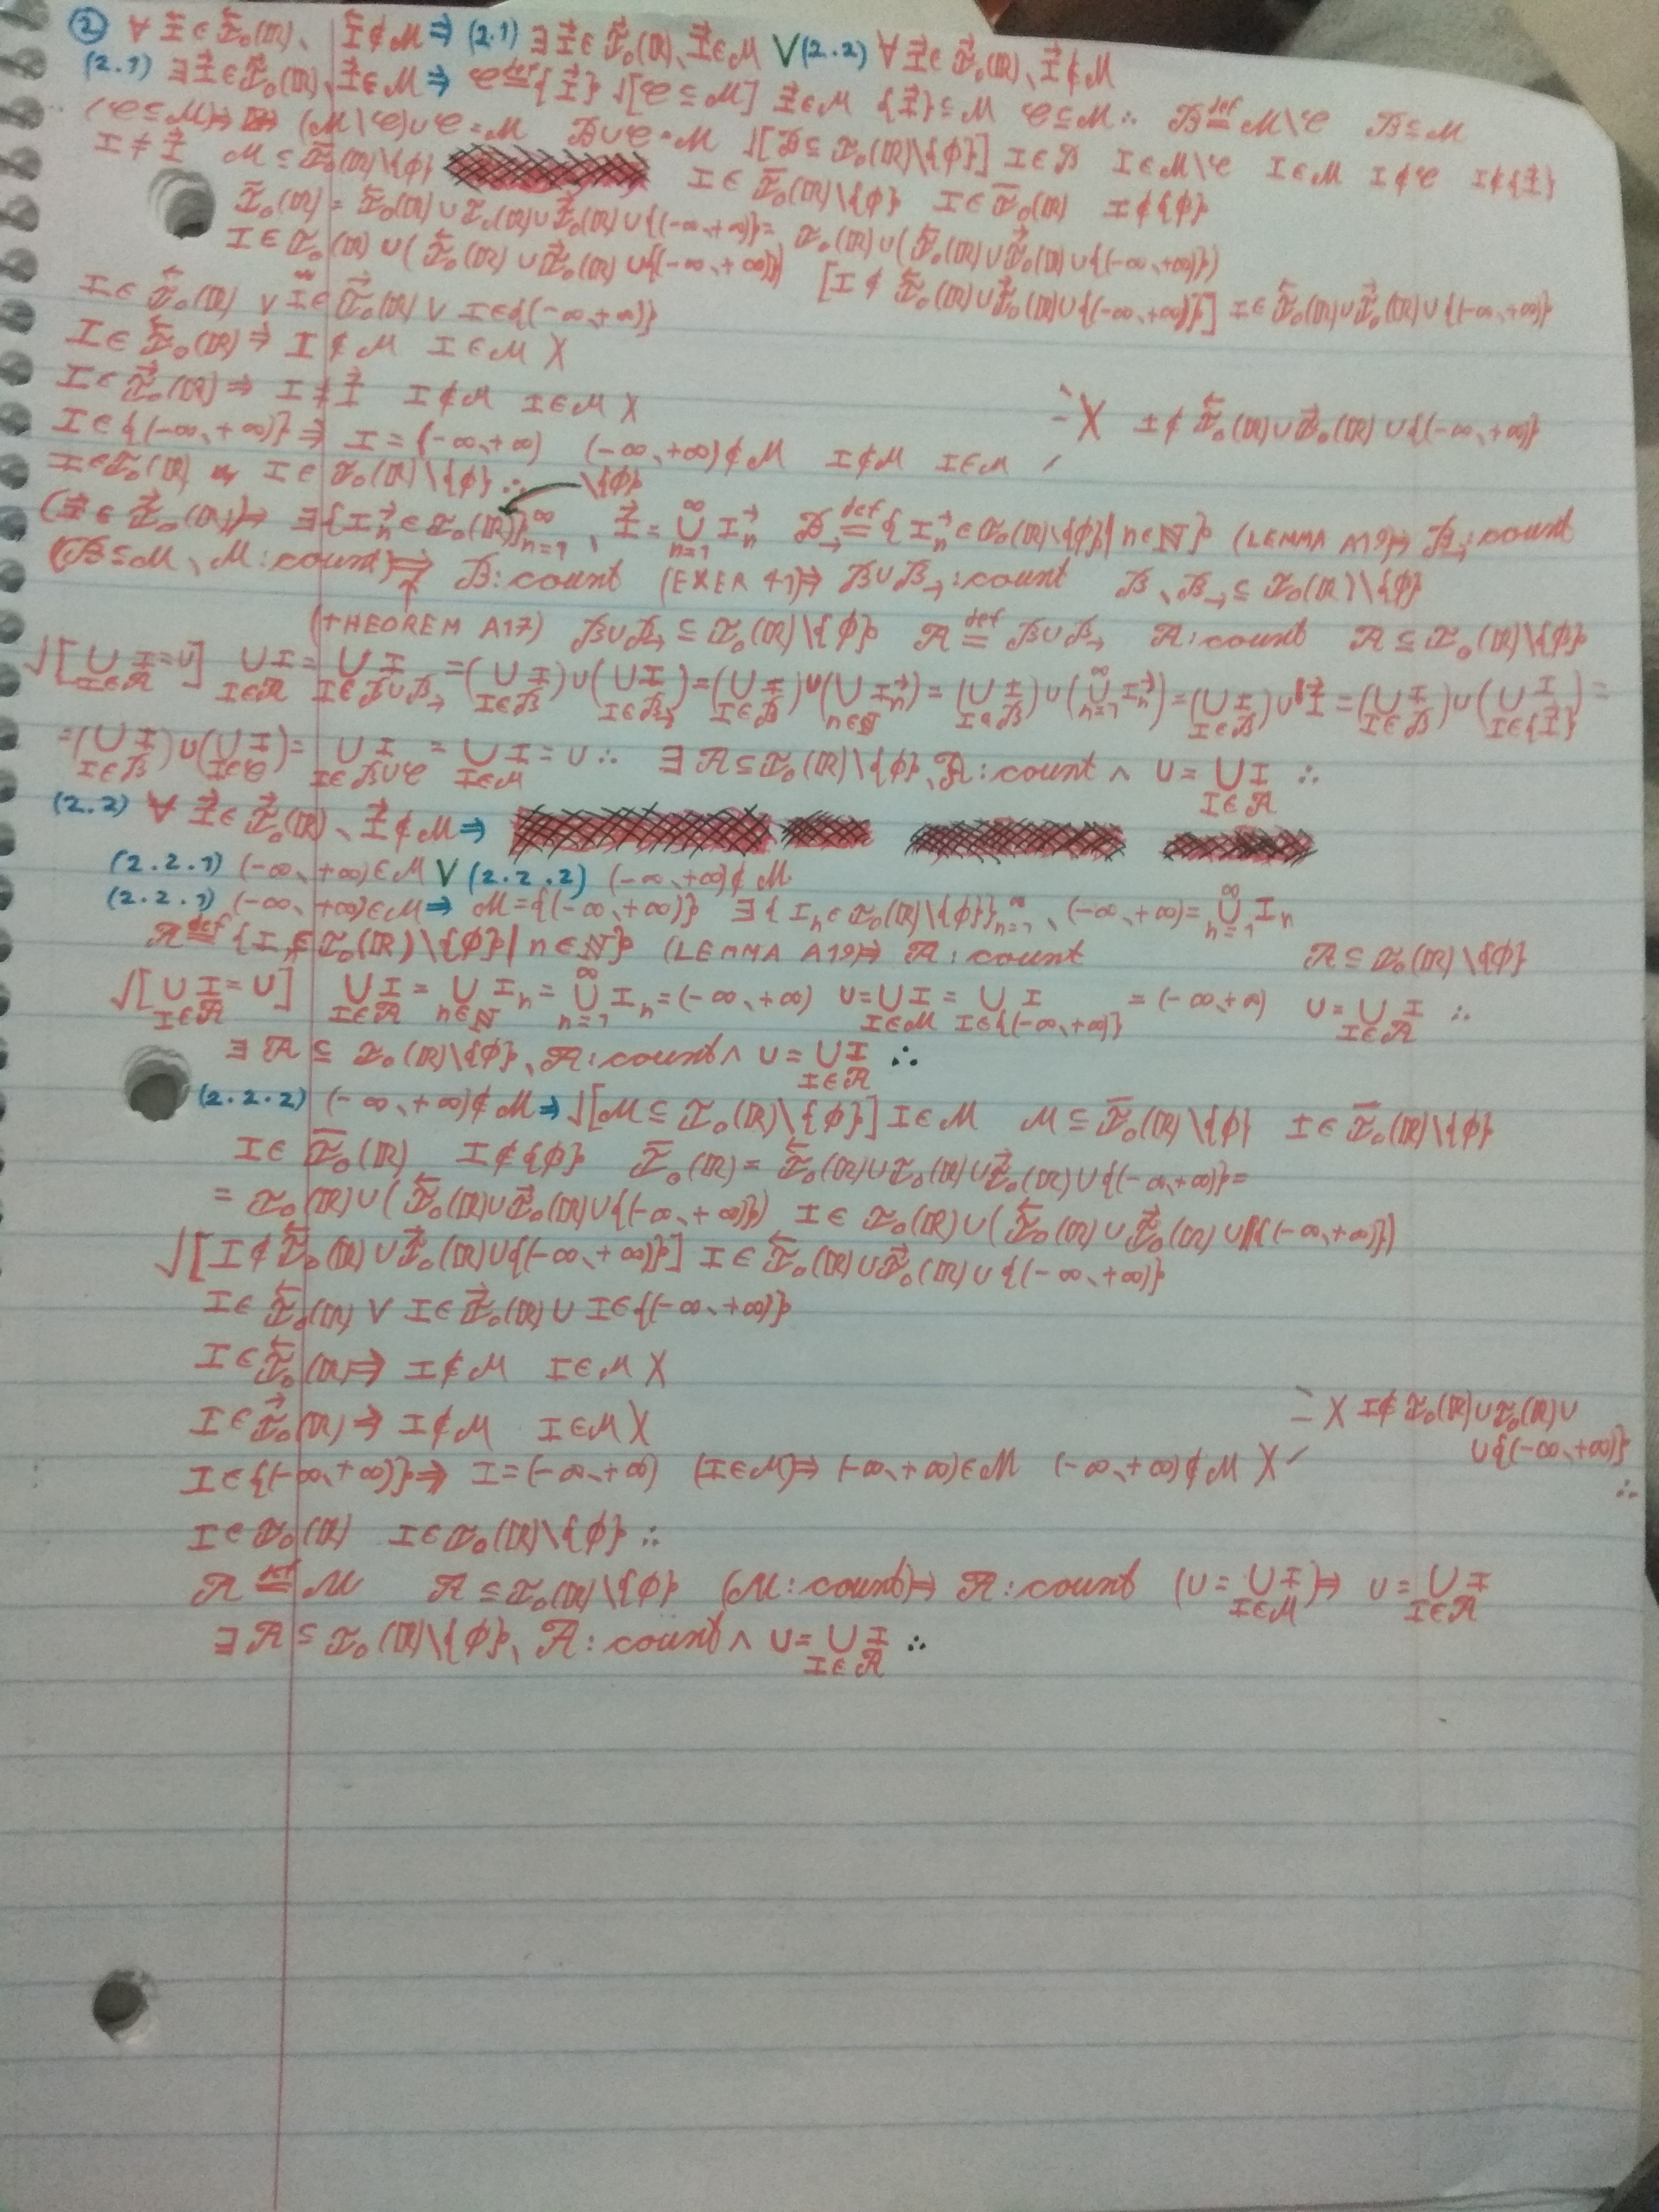 ② ∀ I⃖ ∈ I⃖₀(ℝ)、 I⃖ ∉ M ⇒ (2.1) ∃ I⃗ ∈ I⃗₀(ℝ)、I⃗ ∈ M ∨ (2.2) ∀ I⃗ ∈ I⃗₀(ℝ)、I⃗ ∉ M
(2.1) ∃ I⃗ ∈ I⃗₀(ℝ)、I⃗ ∈ M ⇒ C ≝ {I⃗} √[C ⊆ M] I⃗ ∈ M {I⃗} ⊆ M C ⊆ M ∴ B ≝ M\C B ⊆ M
(C ⊆ M) ⇒ (M\C) ∪ C = M B ∪ C = M √[B ⊆ I₀(ℝ)\{∅}] I ∈ B I ∈ M\C I ∈ M I ∉ C I ∉ {I⃗}
I ≠ I⃗ M ⊆ I̅₀(ℝ)\{∅} I ∈ I̅₀(ℝ)\{∅} I ∈ I̅₀(ℝ) I ∉ {∅}
I̅₀(ℝ) = I⃖₀(ℝ) ∪ I₀(ℝ) ∪ I⃗₀(ℝ) ∪ {(-∞、+∞)} = I₀(ℝ) ∪ (I⃖₀(ℝ) ∪ I⃗₀(ℝ) ∪ {(-∞、+∞)})
I ∈ I₀(ℝ) ∪ (I⃖₀(ℝ) ∪ I⃗₀(ℝ) ∪ {(-∞、+∞)}) [I ∉ I⃖₀(ℝ) ∪ I⃗₀(ℝ) ∪ {(-∞、+∞)}] I ∈ I⃖₀(ℝ) ∪ I⃗₀(ℝ) ∪ {(-∞、+∞)}
I ∈ I⃖₀(ℝ) ∨ I ∈ I⃗₀(ℝ) ∨ I ∈ {(-∞、+∞)}
I ∈ I⃖₀(ℝ) ⇒ I ∉ M I ∈ M X
I ∈ I⃗₀(ℝ) ⇒ I ≠ I⃗ I ∉ M I ∈ M X
I ∈ {(-∞、+∞)} ⇒ I = (-∞、+∞) (-∞、+∞) ∉ M I ∉ M I ∈ M X I ∉ I⃖₀(ℝ) ∪ I⃗₀(ℝ) ∪ {(-∞、+∞)}
I ∈ I₀(ℝ) I ∈ I₀(ℝ)\{∅} ∴ \{∅}
(I⃗ ∈ I⃗₀(ℝ)) ⇒ ∃ {I⃗ₙ ∈ I₀(ℝ)}ₙ₌₁^∞、 I⃗ = ∪ₙ₌₁^∞ I⃗ₙ B→ ≝ {I⃗ₙ ∈ I₀(ℝ)\{∅} | n ∈ ℕ} (LEMMA A19) ⇒ B→ : count
(B ⊆ M、M : count) ⇒ B : count (EXER 41) ⇒ B ∪ B→ : count B、B→ ⊆ I₀(ℝ)\{∅}
(THEOREM A17) B ∪ B→ ⊆ I₀(ℝ)\{∅} A ≝ B ∪ B→ A : count A ⊆ I₀(ℝ)\{∅}
√[∪_{I∈A} I = U] ∪_{I∈A} I = ∪_{I∈B∪B→} I = (∪_{I∈B} I) ∪ (∪_{I∈B→} I) = (∪_{I∈B} I) ∪ (∪_{n∈ℕ} I⃗ₙ) = (∪_{I∈B} I) ∪ (∪ₙ₌₁^∞ I⃗ₙ) = (∪_{I∈B} I) ∪ I⃗ = (∪_{I∈B} I) ∪ (∪_{I∈{I⃗}} I) =
= (∪_{I∈B} I) ∪ (∪_{I∈C} I) = ∪_{I∈B∪C} I = ∪_{I∈M} I = U ∴ ∃ A ⊆ I₀(ℝ)\{∅}、A : count ∧ U = ∪_{I∈A} I ∴
(2.2) ∀ I⃗ ∈ I⃗₀(ℝ)、I⃗ ∉ M ⇒
(2.2.1) (-∞、+∞) ∈ M ∨ (2.2.2) (-∞、+∞) ∉ M
(2.2.1) (-∞、+∞) ∈ M ⇒ M = {(-∞、+∞)} ∃ {Iₙ ∈ I₀(ℝ)\{∅}}ₙ₌₁^∞、(-∞、+∞) = ∪ₙ₌₁^∞ Iₙ
A ≝ {Iₙ ∈ I₀(ℝ)\{∅} | n ∈ ℕ} (LEMMA A19) ⇒ A : count A ⊆ I₀(ℝ)\{∅}
√[∪_{I∈A} I = U] ∪_{I∈A} I = ∪_{n∈ℕ} Iₙ = ∪ₙ₌₁^∞ Iₙ = (-∞、+∞) U = ∪_{I∈M} I = ∪_{I∈{(-∞、+∞)}} I = (-∞、+∞) U = ∪_{I∈A} I ∴
∃ A ⊆ I₀(ℝ)\{∅}、A : count ∧ U = ∪_{I∈A} I ∴
(2.2.2) (-∞、+∞) ∉ M ⇒ √[M ⊆ I₀(ℝ)\{∅}] I ∈ M M ⊆ I̅₀(ℝ)\{∅} I ∈ I̅₀(ℝ)\{∅}
I ∈ I̅₀(ℝ) I ∉ {∅} I̅₀(ℝ) = I⃖₀(ℝ) ∪ I₀(ℝ) ∪ I⃗₀(ℝ) ∪ {(-∞、+∞)} =
= I₀(ℝ) ∪ (I⃖₀(ℝ) ∪ I⃗₀(ℝ) ∪ {(-∞、+∞)}) I ∈ I₀(ℝ) ∪ (I⃖₀(ℝ) ∪ I⃗₀(ℝ) ∪ {(-∞、+∞)})
√[I ∉ I⃖₀(ℝ) ∪ I⃗₀(ℝ) ∪ {(-∞、+∞)}] I ∈ I⃖₀(ℝ) ∪ I⃗₀(ℝ) ∪ {(-∞、+∞)}
I ∈ I⃖₀(ℝ) ∨ I ∈ I⃗₀(ℝ) ∪ I ∈ {(-∞、+∞)}
I ∈ I⃖₀(ℝ) ⇒ I ∉ M I ∈ M X
I ∈ I⃗₀(ℝ) ⇒ I ∉ M I ∈ M X X I ∉ I₀(ℝ) ∪ I₀(ℝ) ∪
∪ {(-∞、+∞)}
I ∈ {(-∞、+∞)} ⇒ I = (-∞、+∞) (I ∈ M) ⇒ (-∞、+∞) ∈ M (-∞、+∞) ∉ M X ∴
I ∈ I₀(ℝ) I ∈ I₀(ℝ)\{∅} ∴
A ≝ M A ⊆ I₀(ℝ)\{∅} (M : count) ⇒ A : count (U = ∪_{I∈M} I) ⇒ U = ∪_{I∈A} I
∃ A ⊆ I₀(ℝ)\{∅}、A : count ∧ U = ∪_{I∈A} I ∴